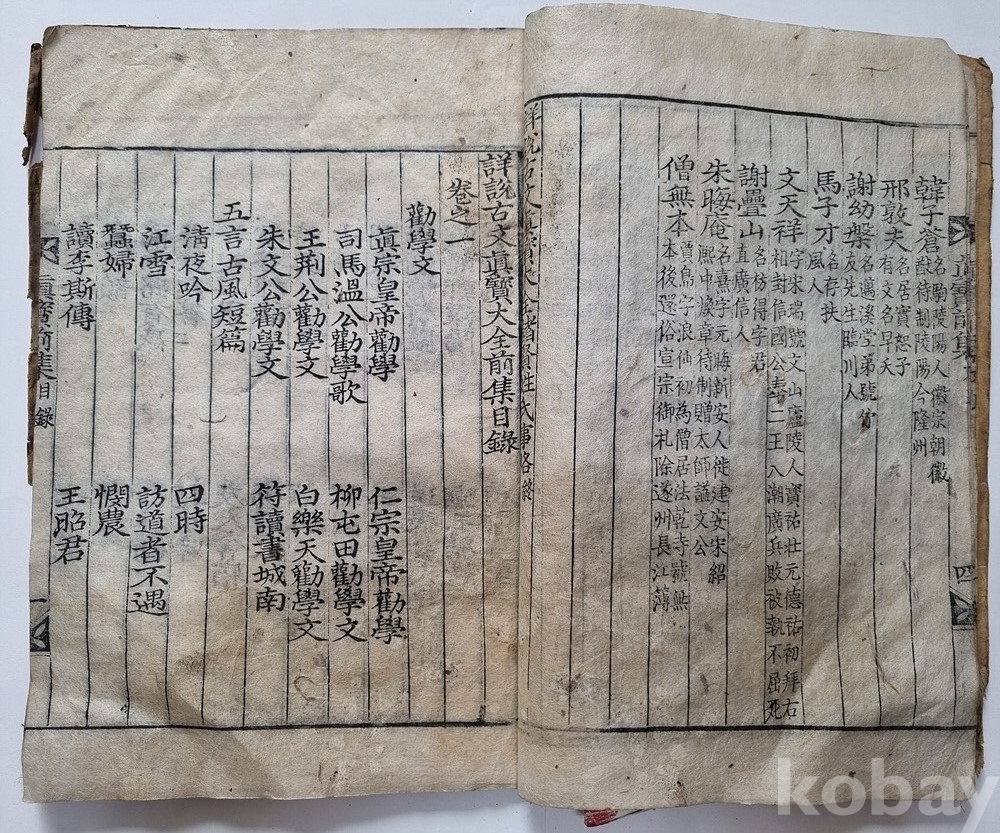 眞寶前集
四
韓子蒼 名駒陵陽人徽宗朝徽
猷待制陵陽今隆州
邢敦夫 名居實恕子
有文名早夭
謝幼槃 名邁溪堂弟號竹
友先生臨川人
馬子才 名存扶
風人
文天祥 字宋瑞號文山廬陵人寶祐壯元德祐初拜右
相封信國公奉二王入潮廣兵敗被執不屈死
謝疊山 名仿得字君
直廣信人
朱晦庵 名熹字元晦新安人徙建安宋紹
熙中煥章待制贈太師諡文公
僧無本 賈島字浪仙初為僧居法乾寺號無
本後還俗宣宗御札除遂州長江簿
詳說古文眞寶大全諸賢姓氏事略終
詳說古文眞寶大全前集目錄
卷之一
勸學文
眞宗皇帝勸學 仁宗皇帝勸學
司馬溫公勸學歌 柳屯田勸學文
王荆公勸學文 白樂天勸學文
朱文公勸學文 符讀書城南
五言古風短篇
清夜吟 四時
江雪 訪道者不遇
蠶婦 憫農
讀李斯傳 王昭君
眞寶前集目錄
一
kobay